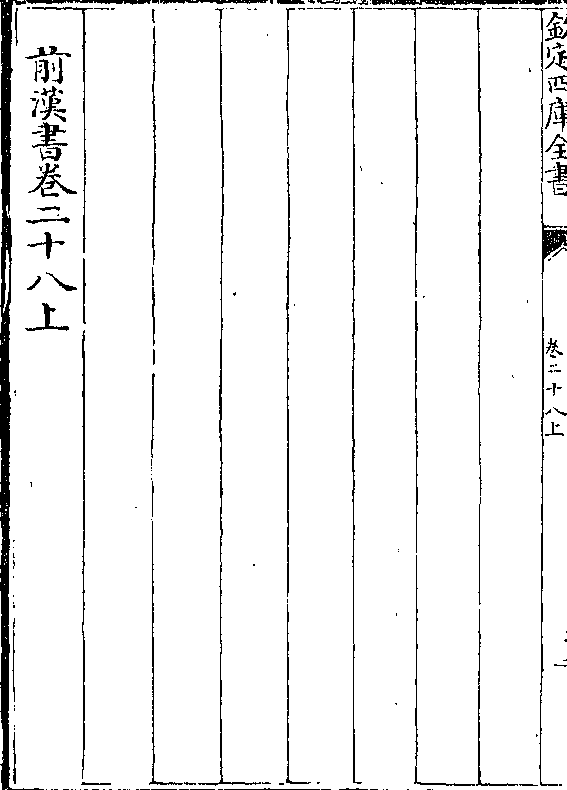 欽定四庫全書
卷二十八上
前漢書卷二十八上